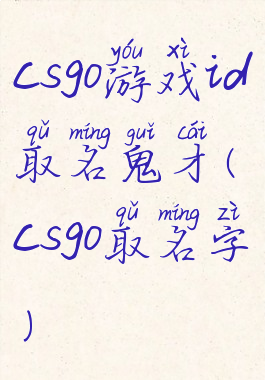 yóu xì
csgo游戏id
qǔ míng guǐ cái
取名鬼才(
qǔ míng zì
csgo取名字
)